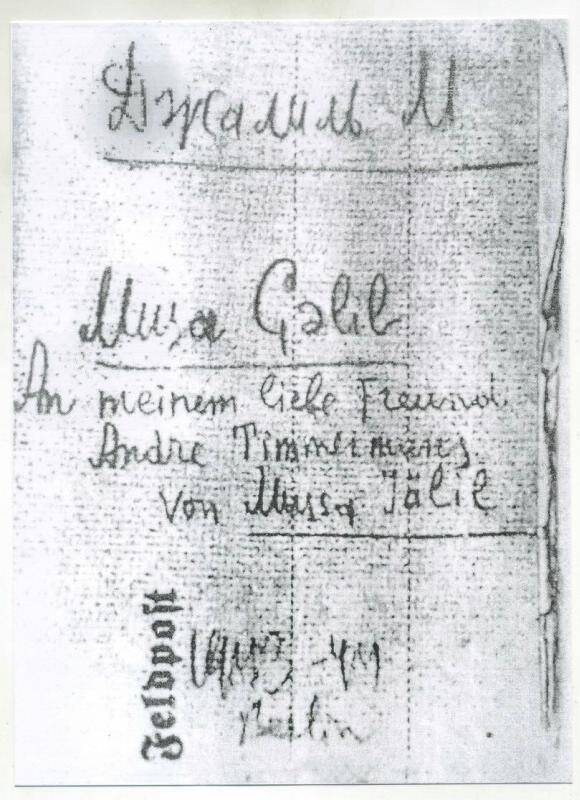 Джалиль М
Musa Çəlil
An meinem liebe Freund
Andre Timmermans
von Mussa Jälil
Feldpost
Berlin